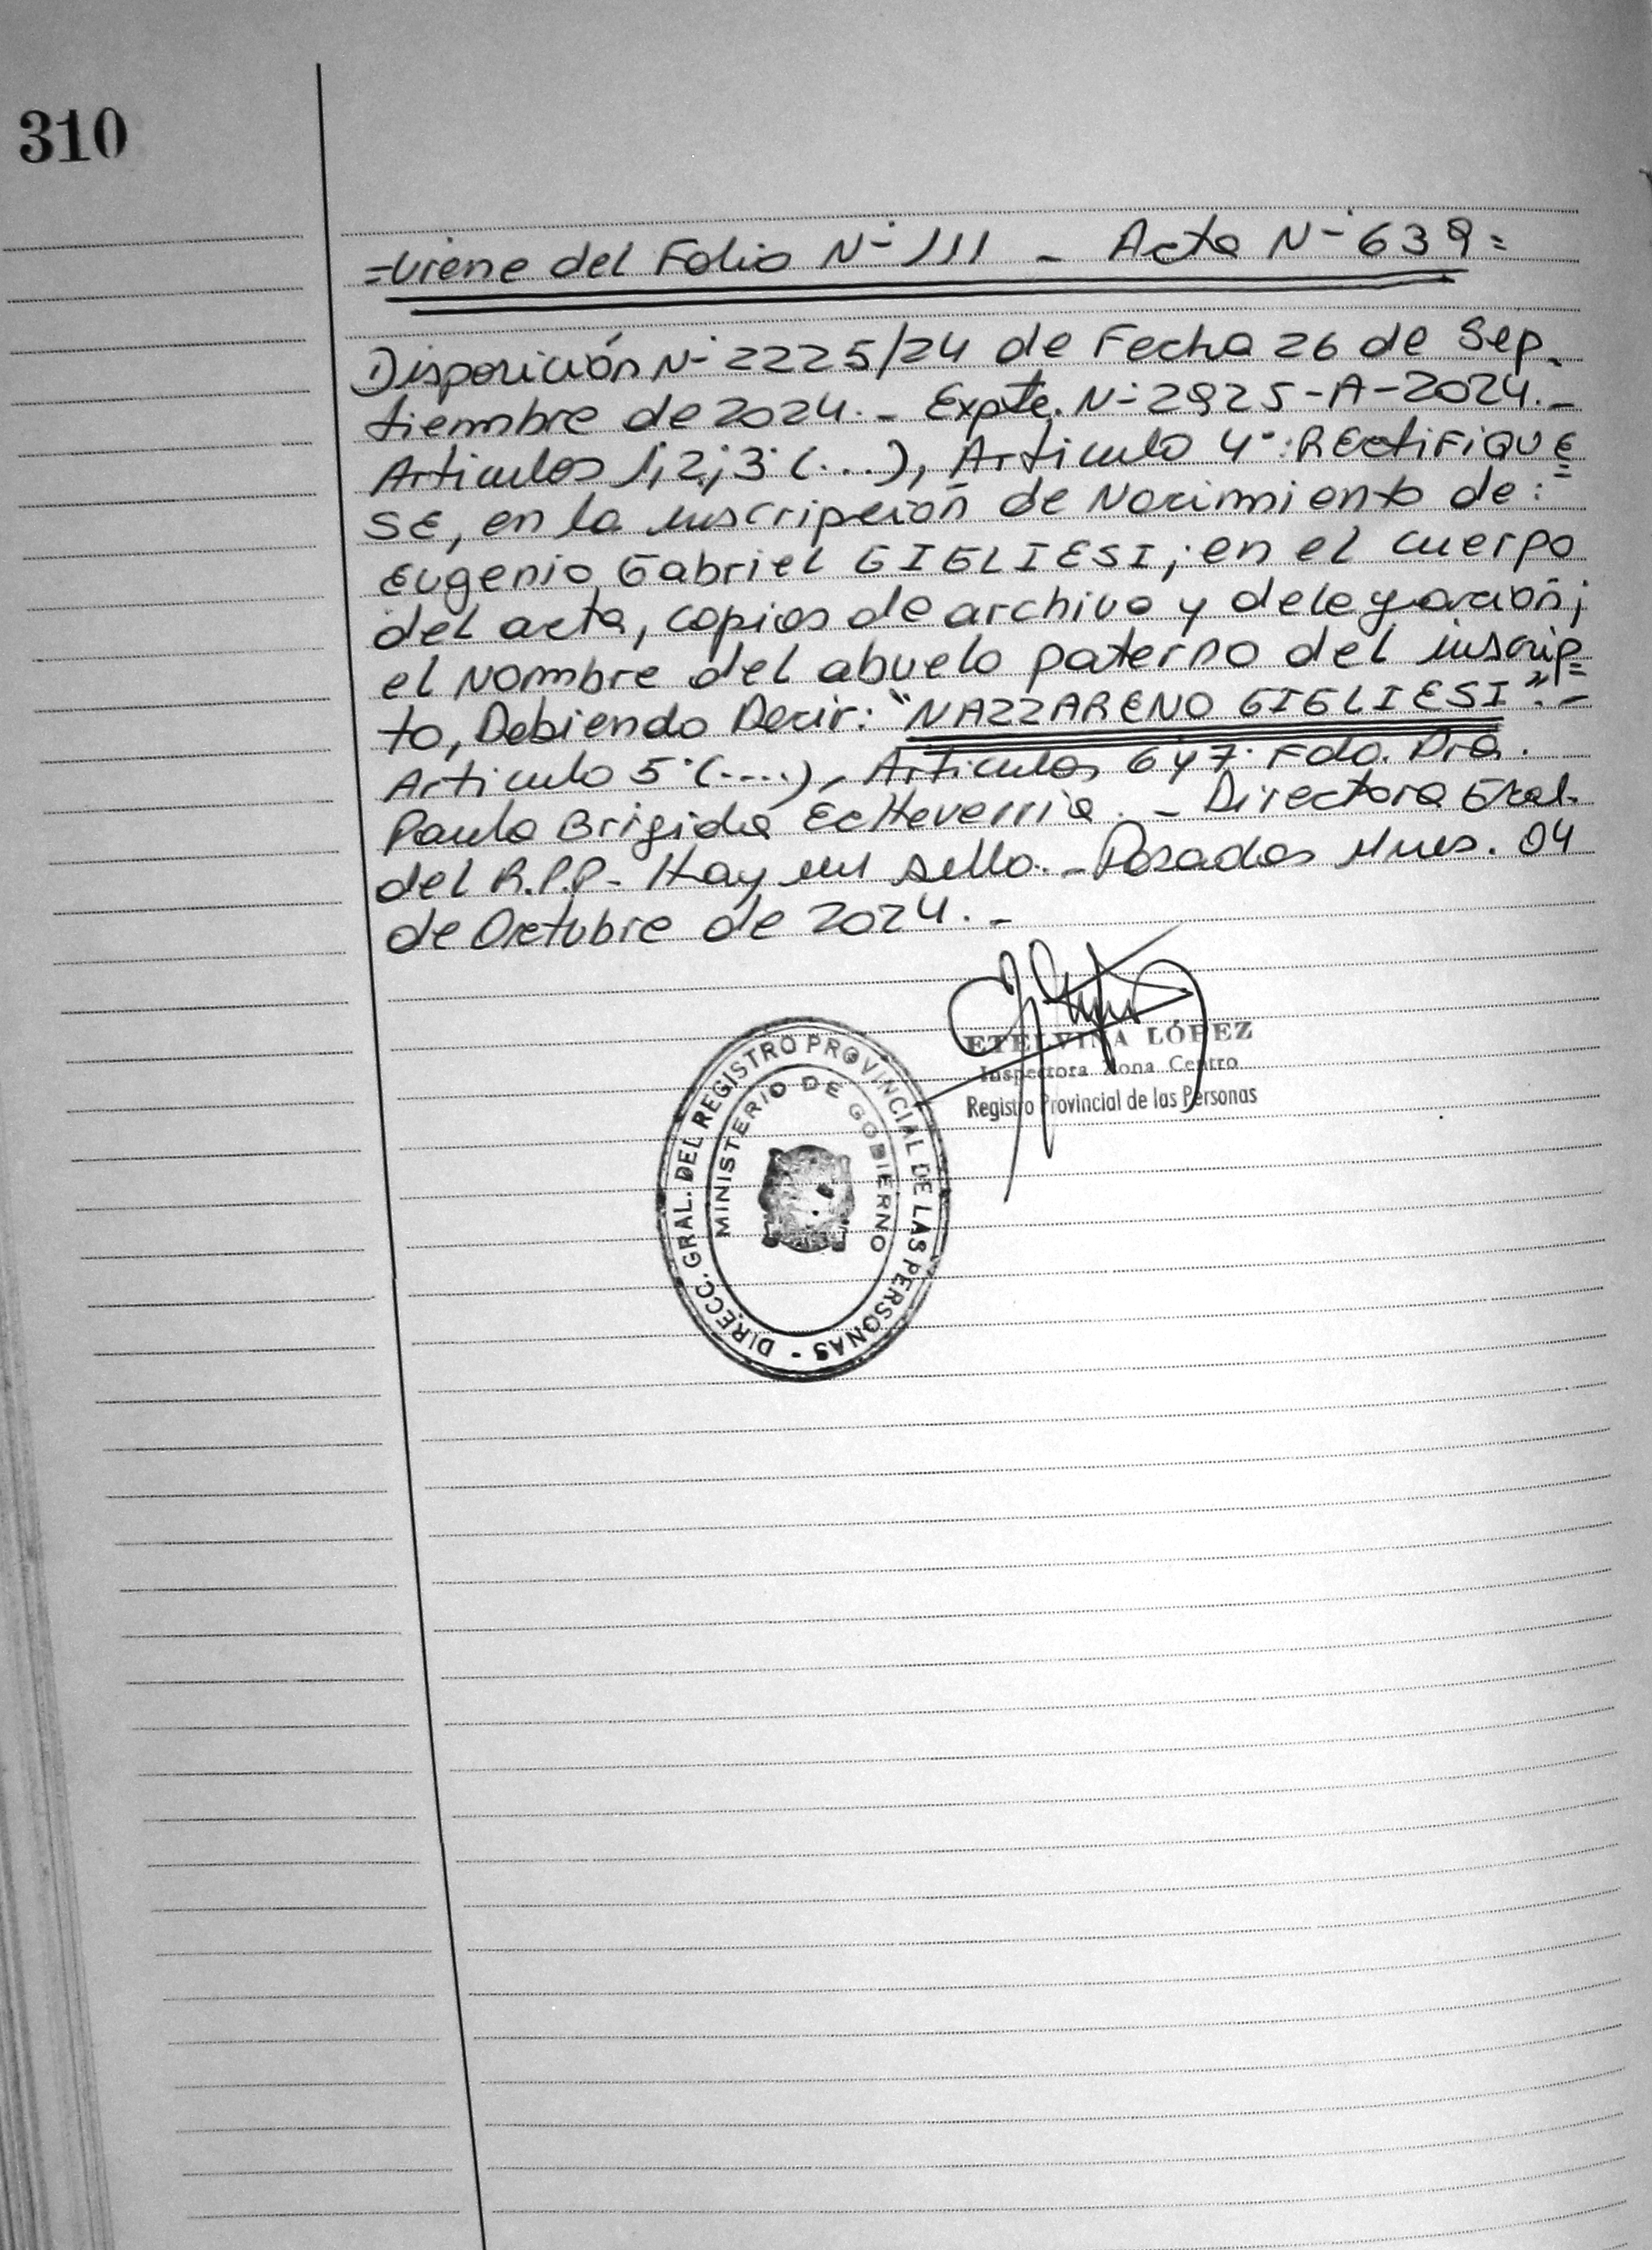 310
=Viene del Folio N° 111 - Acta N° 639=
Disposición N° 2225/24 de Fecha 26 de Sep-
tiembre de 2024.- Expte. N° 2925-A-2024.-
Articulos 1,2,3°(...), Articulo 4°: RECTIFIQUE
SE, en la inscripción de Nacimiento de:
Eugenio Gabriel GIGLIESI; en el cuerpo
del acta, copias de archivo y delegación;
el Nombre del abuelo paterno del inscrip=
to, Debiendo Decir: "NAZZARENO GIGLIESI".-
Articulo 5°(....), Articulos 6 y 7° Fdo. Dra.
Paula Brigida Echeverria.- Directora Gral.
del R.P.P- Hay un sello.- Posadas Mnes. 04
de Octubre de 2024.-
ETELVINA LÓPEZ
Inspectora Zona Centro
Registro Provincial de las Personas
DIRECC. GRAL. DEL REGISTRO PROVINCIAL DE LAS PERSONAS -
MINISTERIO DE GOBIERNO